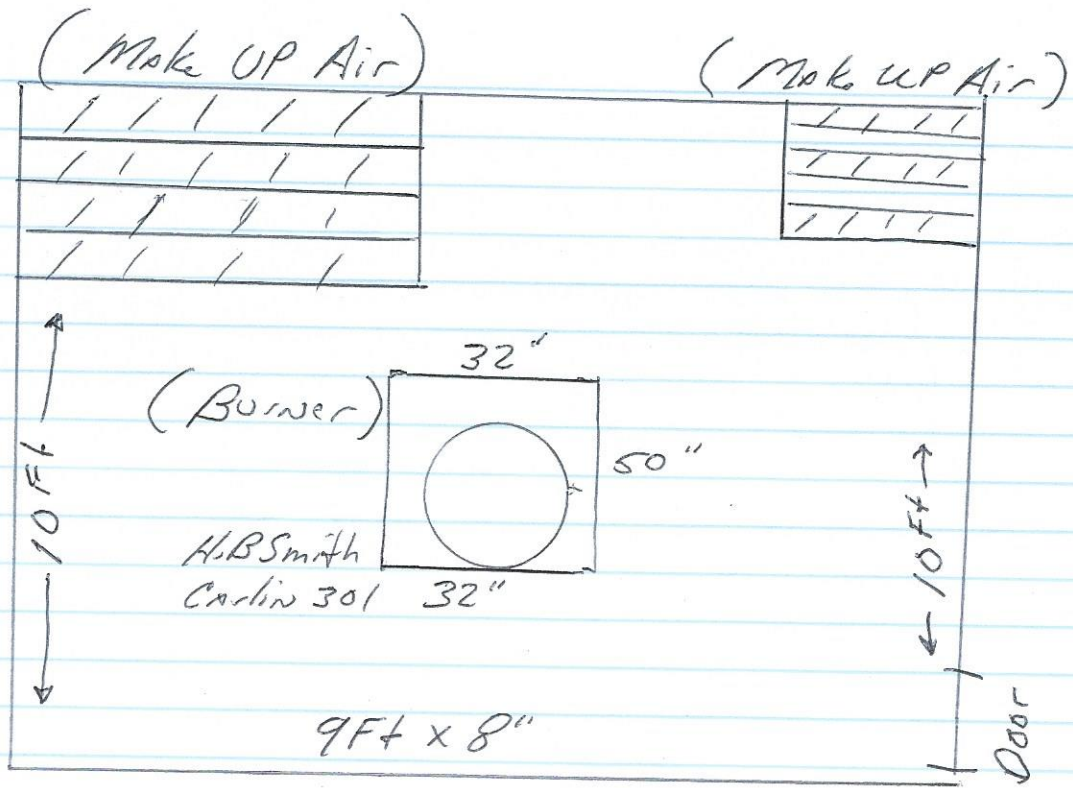 (Make UP Air)
(Make UP Air)
32"
(Burner)
50"
10 Ft
10 Ft
H.B Smith
Carlin 301
32"
Door
9 Ft x 8"